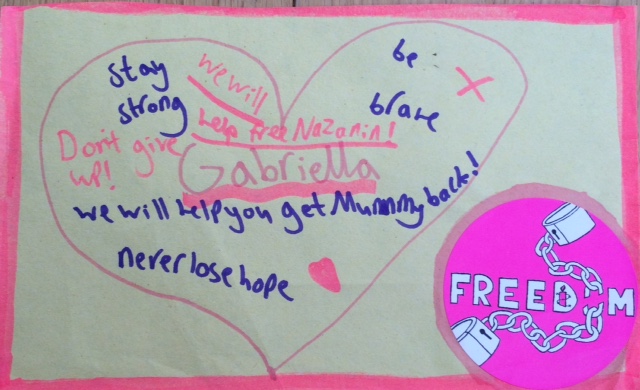 stay
strong
we will
help free Nazanin!
be
brave
Don't give
up!
Gabriella
we will help you get Mummy back!
never lose hope
FREEDOM